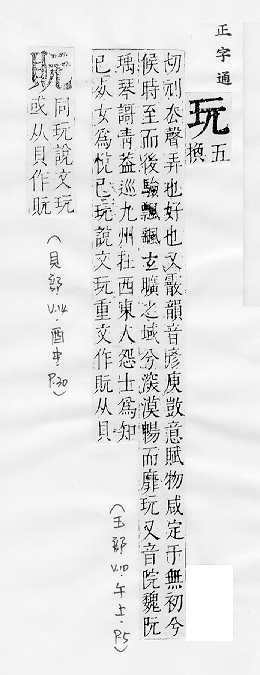 正字通
玩
五換
切刓厺聲弄也好也又霰韻音瘮庾敳意賦物咸定于無初今
候時至而後驗飄飄玄曠之域兮深漠暢而靡玩又音院魏阮
瑀琴謌青蓋巡九州在西東人怨士爲知
已死女爲悅已玩說文玩重文作貦从貝
(玉部 V.10. 午上. P.5)
貦
同玩說文玩
或从貝作貦
(貝部 V.14. 酉中. P.30)